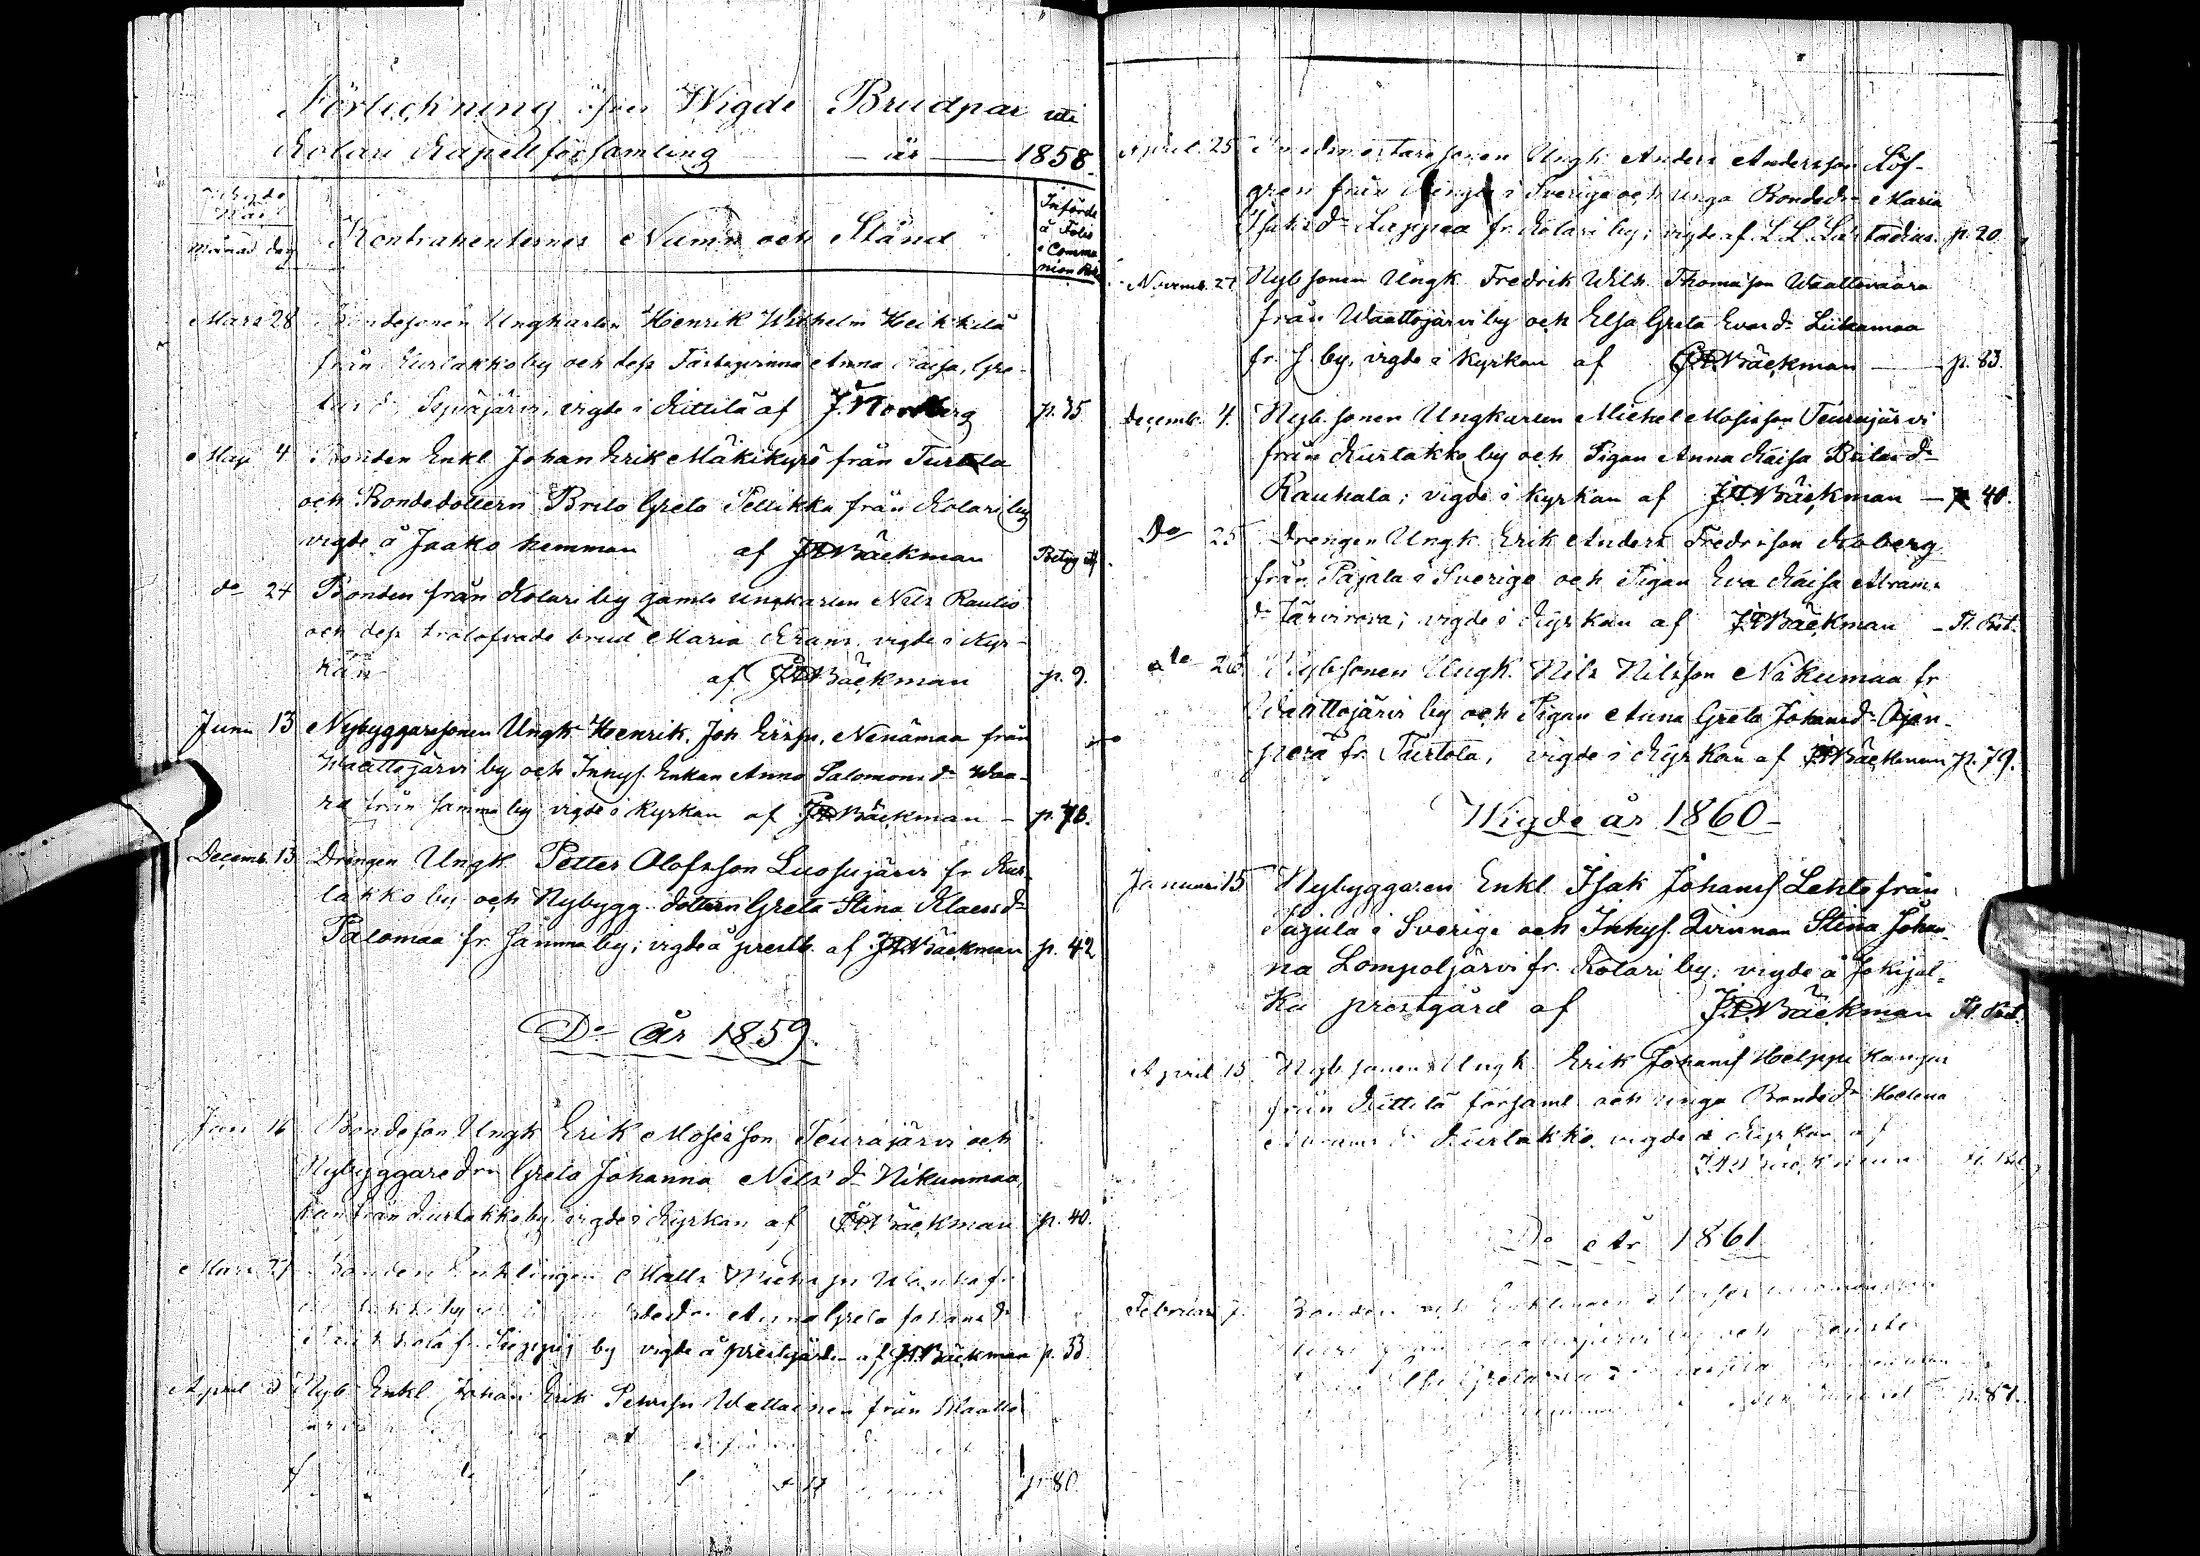 Förteckning öfver Wigde Brudpar uti
Kolari Kapellförsamling år 1858.
Månad dag
Kontrahenternes Namn och Stånd
Införde
å Folio
i Commu
nion Bok
Mars 28 Bondesonen Ungkarlen Henrik Wilhelm Heikkilä
från Kurtakko by och dess Fästeqvinna Anna Caisa, Gre-
tas dr Seppäjärvi, vigde i Kittilä af J. Nordberg p. 35
Maji 4 Bonden Enkl Johan Erik Mäkikyrö från Turtola
och Bondedottern Brita Greta Pellikka från Kolari by
vigde å Jaako hemman af J. A. Bäckman Betyg utg.
do 24 Bonden från Kolari by gamle ungkarlen Nils Rautio
och dess trolofvade brud Maria Krans, vigde i Kyr-
kan af J. A. Bäckman p. 9.
Junii 13 Nybyggaresonen Ungk Henrik Joh Ersson, Nenämaa från
Waattojärvi by och Inhys. Enkan Anna Salomons dr Waa-
ra från samma by vigde i Kyrkan af J. A. Bäckman – p. 78.
Decemb. 13 Drängen Ungk Petter Olofsson Luosujärvi fr Kur-
takko by och Nybygg. dottern Greta Stina Klaes dr
Palomaa fr samma by; vigde å prestb. af J. A. Bäckman p. 42
Do år 1859.
16 Bondeson Ungk Erik Mosesson Teurajärvi och
Nybyggare drn Greta Johanna Nils dr Nikunmaa,
från Kurtakko by vigde i Kyrkan af J. A. Bäckman p. 40.
Mars 27 Bonden Enklingen Matts
Anna Greta Johans dr
fr by vigde å prestgården af J. A. Bäckman p. 33
April 3 Nyb Enkl Johan Erik från Waatto
p. 80.
April 25 Ungk Anders Andersson Löf-
gren från Kengis i Sverige och unga Bonde dr Maria
Isaks dr Lappea fr Kolari by; vigde af L. L. Læstadius. p. 20
Novemb. 27 Nyb sonen Ungk. Fredrik Wilh. Thomasson Waattovaara
från Waattojärvi by och Elsa Greta Evas dr Liikamaa
fr s. by, vigde i Kyrkan af J. A. Bäckman p. 83.
Decemb. 4. Nyb. sonen Ungkarlen Michel Mosesson Teurajärvi
från Kurtakko by och Pigan Anna Kaisa Britas dr
Rauhala; vigde i Kyrkan af J. A. Bäckman – p. 40.
Do 25 Drengen Ungk Erik Anders Fredrsson Koberg
från Pajala i Sverige och Pigan Eva Kaisa Abrams
dr Järvirova; vigde i Kyrkan af J. A. Bäckman – Fl. Bet.
do 26 Nyb sonen Ungk. Nils Nilsson Nikumaa fr
Waattojärvi by och Pigan Anna Greta Johans dr Ojan-
perä fr. Turtola, vigde i Kyrkan af J. A. Bäckman p. 79.
Wigde år 1860
Januari 15 Nybyggaren Enkl. Isak Johanss Lehto från
Pajala i Sverige och Inhys. Qvinnan Stina Johan-
na Lompoljärvi fr. Kolari by; vigde å Jokijal-
ka prestgård af J. A. Bäckman Fl. Bet.
April 15 Nyb sonen Ungk Erik Johanss Helppi Kangas
från Kittilä församl och unga Bonde dr Helena
Abrams dr Kurtakko vigde i Kyrkan af
J. A. Bäckman
Do År 1861
Februari 7. Bonden och Enklingen
och
Elsa Greta
p. 87.